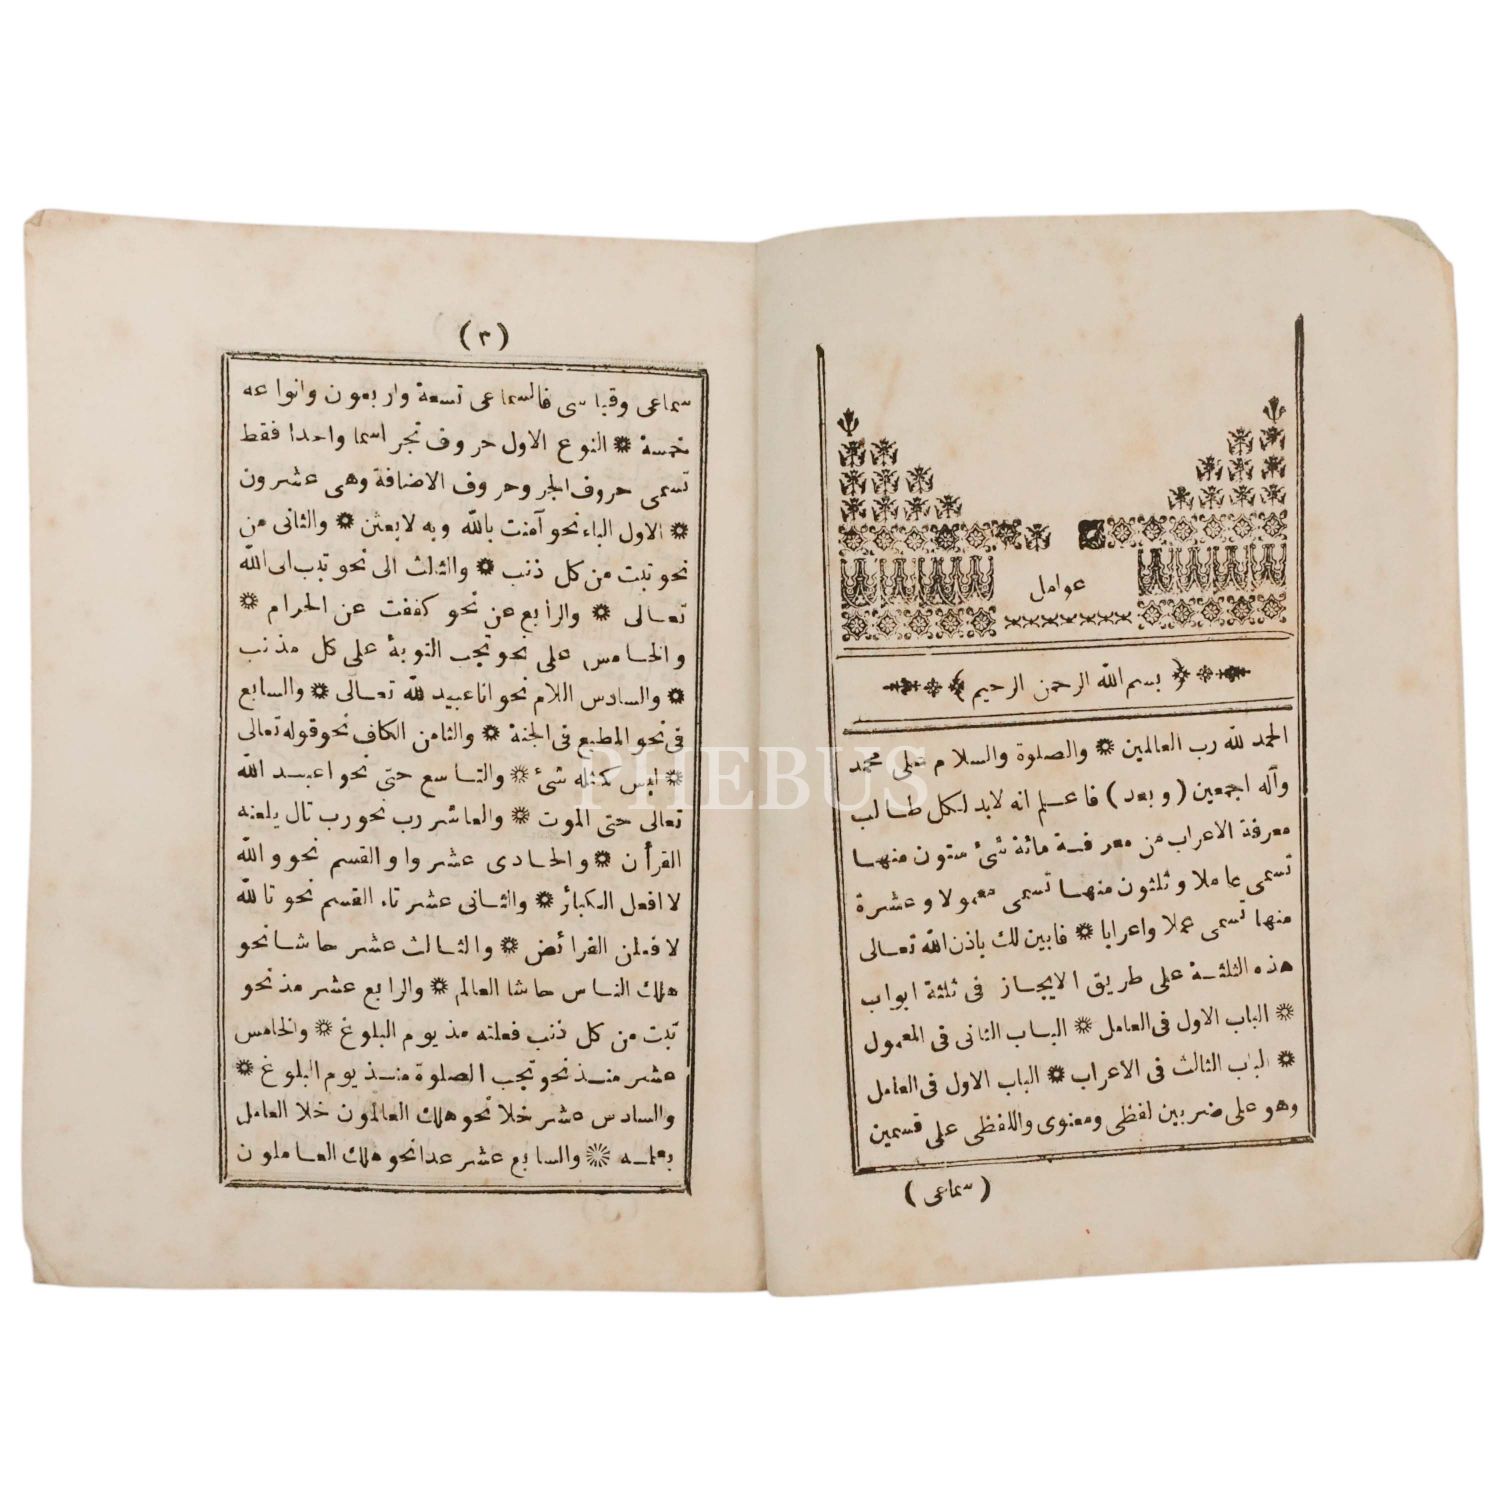 عوامل
﴿ بسم الله الرحمن الرحيم ﴾
الحمد لله رب العالمين ❋ والصلوة والسلام على محمد
وآله اجمعين ( وبعد ) فاعلم انه لابد لكل طالب
معرفة الاعراب من معرفة مائة شئ ستون منها
تسمى عاملا وثلثون منها تسمى معمولا وعشرة
منها تسمى عملا واعرابا ❋ فابين لك باذن الله تعالى
هذه الثلثة على طريق الايجاز فى ثلثة ابواب
❋ الباب الاول فى العامل ❋ الباب الثانى فى المعمول
❋ الباب الثالث فى الاعراب ❋ الباب الاول فى العامل
وهو على ضربين لفظى ومعنوى واللفظى على قسمين
( سماعى )
( ٣ )
سماعى وقياسى فالسماعى تسعة واربعون وانواعه
خمسة ❋ النوع الاول حروف تجر اسما واحدا فقط
تسمى حروف الجر وحروف الاضافة وهى عشرون
❋ الاول الباء نحو آمنت بالله وبه لابعثن ❋ والثانى من
نحو تبت من كل ذنب ❋ والثلث الى نحو تبت الى الله
تعالى ❋ والرابع عن نحو كففت عن الحرام ❋
والخامس على نحو تجب التوبة على كل مذنب
❋ والسادس اللام نحو انا عبيد لله تعالى ❋ والسابع
فى نحو المطيع فى الجنة ❋ والثامن الكاف نحو قوله تعالى
❋ ليس كمثله شئ ❋ والتاسع حتى نحو اعبد الله
تعالى حتى الموت ❋ والعاشر رب نحو رب تال يلعنه
القرأن ❋ والحادى عشر واو القسم نحو والله
لا افعل الكبائر ❋ والثانى عشر تاء القسم نحو تالله
لافعلن الفرائض ❋ والثالث عشر حاشا نحو
هلك الناس حاشا العالم ❋ والرابع عشر مذ نحو
تبت من كل ذنب فعلته مذ يوم البلوغ ❋ والخامس
عشر منذ نحو تجب الصلوة منذ يوم البلوغ ❋
والسادس عشر خلا نحو هلك العالمون خلا العامل
بعلمه ❋ والسابع عشر عدا نحو هلك العاملون
PHEBUS